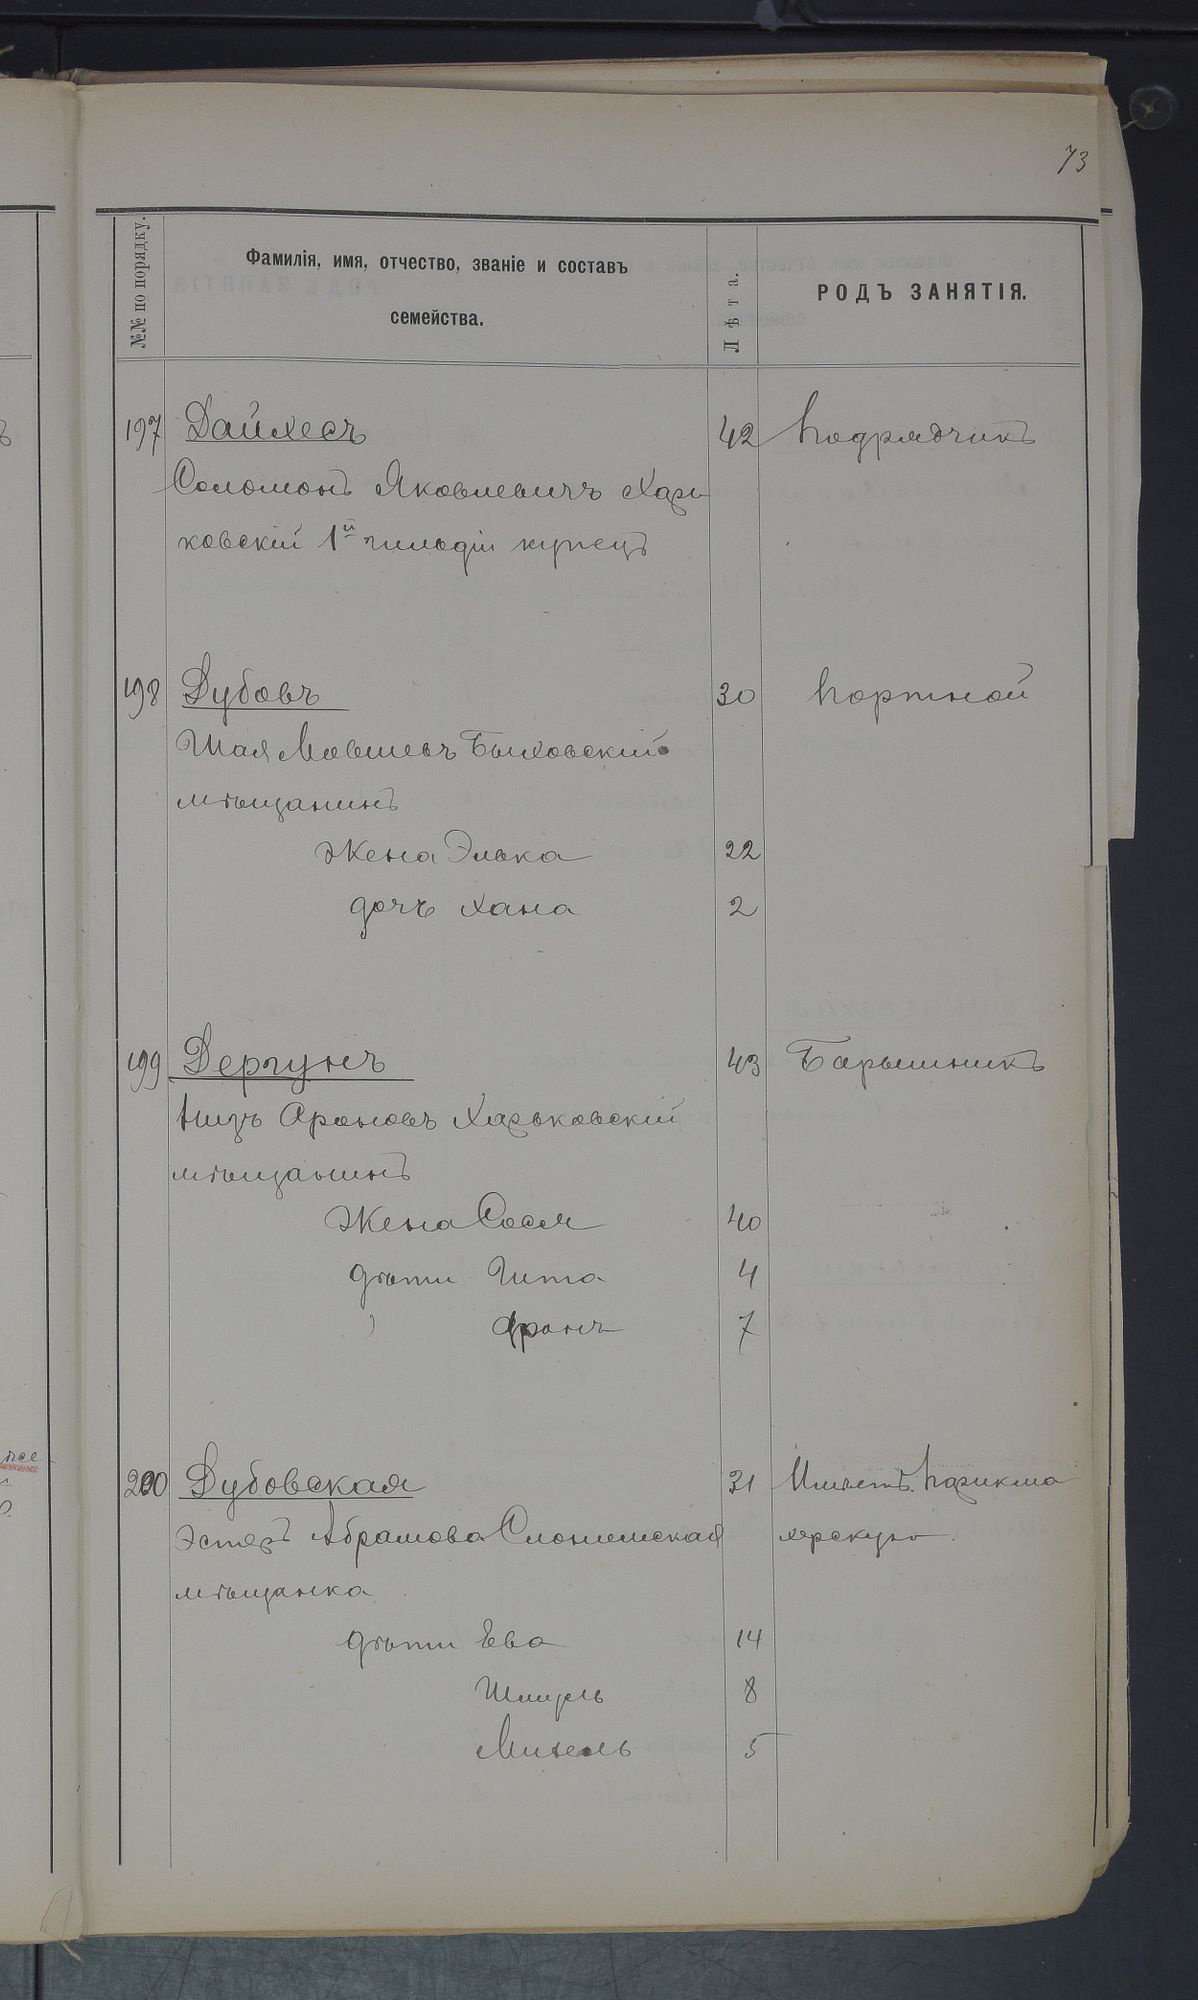 73
№№ по порядку.
Фамилія, имя, отчество, званіе и составъ
семейства.
Лѣта.
РОДЪ ЗАНЯТІЯ.
197 Дайхесъ 42 Подрядчикъ
Соломонъ Яковлевичъ Харь
ковскій 1й гильдіи купецъ
198 Дубовъ 30 Портной
Шая Мовшевъ Быховскій
мѣщанинъ
Жена Элька 22
дочь Хана 2
199 Дергунъ 43 Барышникъ
Ароновъ Харьковскій
мѣщанинъ
Жена Сося 40
дѣти Гита 4
Аронъ 7
200 Дубовская 31 Имѣетъ парикма
Эстеръ Абрамова Слонимская херскую
мѣщанка
дѣти Ева 14
Шмуль 8
Михель 5